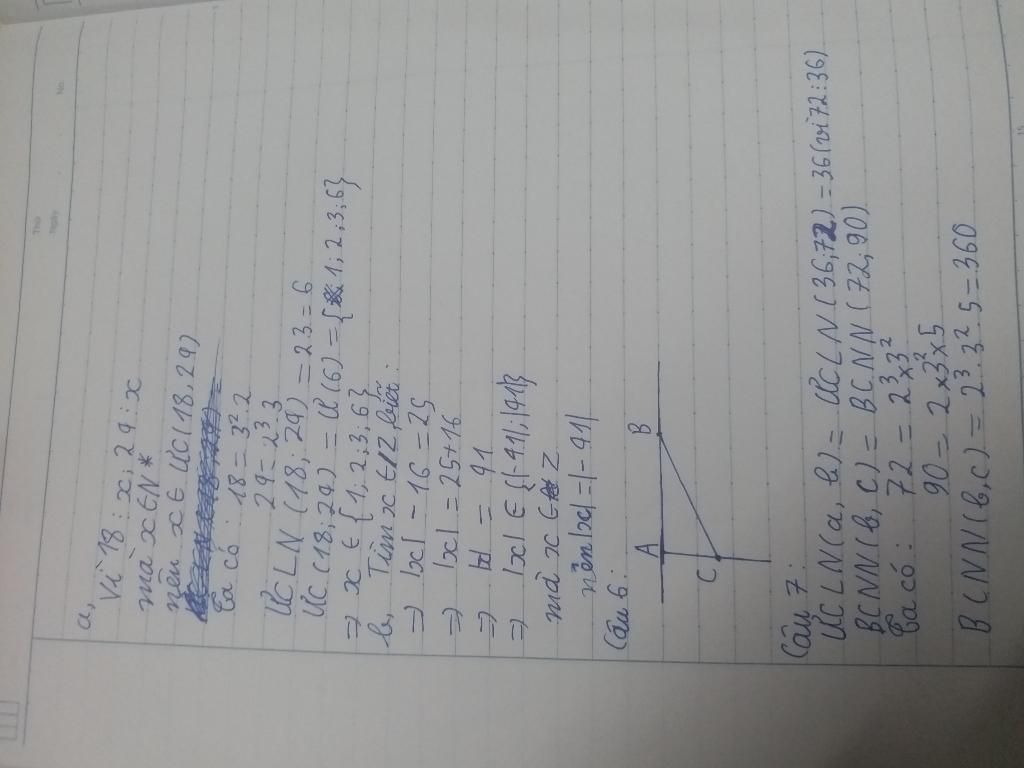 Thứ
Ngày
No.
a,
Vì 18 ⋮ x ; 24 ⋮ x
mà x ∈ N*
nên x ∈ ƯC(18,24)
Ta có : 18 = 3². 2
24 = 2³. 3
ƯCLN (18 ; 24) = 2.3 = 6
ƯC (18; 24) = Ư (6) = { 1 ; 2 ; 3 ; 6}
⇒ x ∈ { 1; 2; 3; 6}
b, Tìm x ∈ Z, biết :
⇒ |x| - 16 = 25
⇒ |x| = 25+16
⇒ |x| = 41
⇒ |x| ∈ {|-41|; |41|}
mà x ∈ Z
nên |x| = |- 41|
Câu 6 :
A B
C
Câu 7 :
ƯCLN (a, b) = ƯCLN (36;72) = 36 (vì 72 ⋮ 36)
BCNN (b, c) = BCNN (72; 90)
Ta có : 72 = 2³×3²
90 = 2×3²×5
BCNN (b,c) = 2³. 3². 5 = 360
19